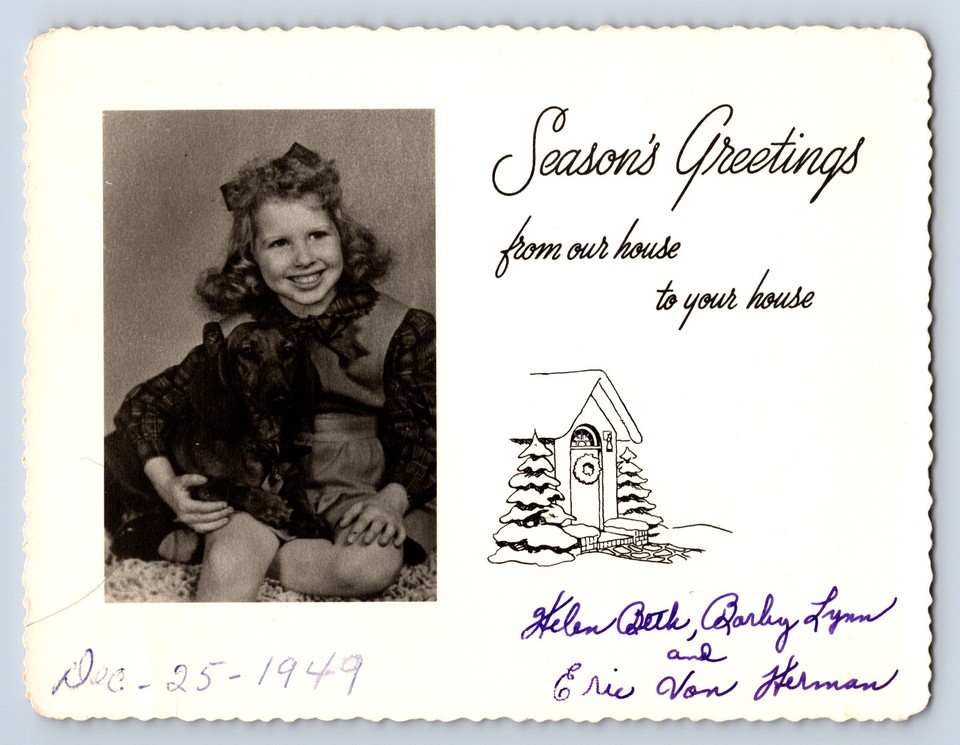 Season's Greetings
from our house
to your house
Helen Beth, Barby Lynn
and
Eric Von Herman
Dec - 25 - 1949